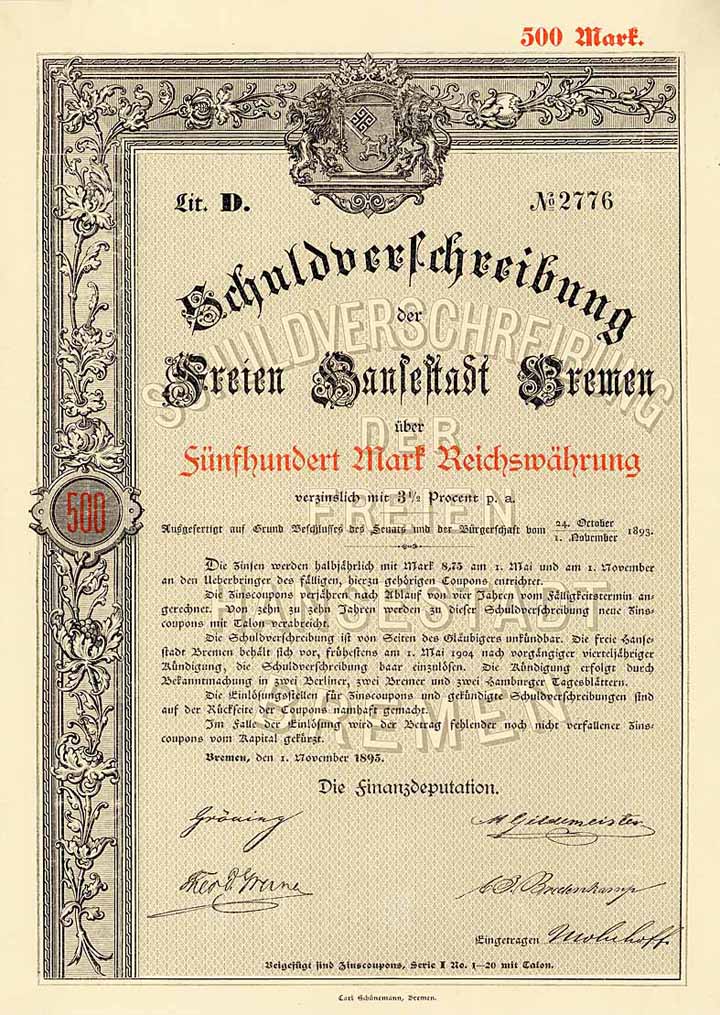 500 Mark.
Lit. D.
№ 2776
Schuldverschreibung
der
Freien Hansestadt Bremen
SCHULDVERSCHREIBUNG
DER
FREIEN
HANSESTADT
BREMEN
über
Fünfhundert Mark Reichswährung
verzinslich mit 3½ Procent p. a.
500
Ausgefertigt auf Grund Beschlusses des Senats und der Bürgerschaft vom 24. October / 1. November 1893.
Die Zinsen werden halbjährlich mit Mark 8,75 am 1. Mai und am 1. November
an den Ueberbringer des fälligen, hierzu gehörigen Coupons entrichtet.
Die Zinscoupons verjähren nach Ablauf von vier Jahren vom Fälligkeitstermin an-
gerechnet. Von zehn zu zehn Jahren werden zu dieser Schuldverschreibung neue Zins-
coupons mit Talon verabreicht.
Die Schuldverschreibung ist von Seiten des Gläubigers unkündbar. Die freie Hanse-
stadt Bremen behält sich vor, frühestens am 1. Mai 1904 nach vorgängiger vierteljähriger
Kündigung, die Schuldverschreibung baar einzulösen. Die Kündigung erfolgt durch
Bekanntmachung in zwei Berliner, zwei Bremer und zwei Hamburger Tagesblättern.
Die Einlösungsstellen für Zinscoupons und gekündigte Schuldverschreibungen sind
auf der Rückseite der Coupons namhaft gemacht.
Im Falle der Einlösung wird der Betrag fehlender noch nicht verfallener Zins-
coupons vom Kapital gekürzt.
Bremen, den 1. November 1893.
Die Finanzdeputation.
Gröning
M Gildemeister
Eingetragen
Beigefügt sind Zinscoupons, Serie I No. 1—20 mit Talon.
Carl Schünemann, Bremen.